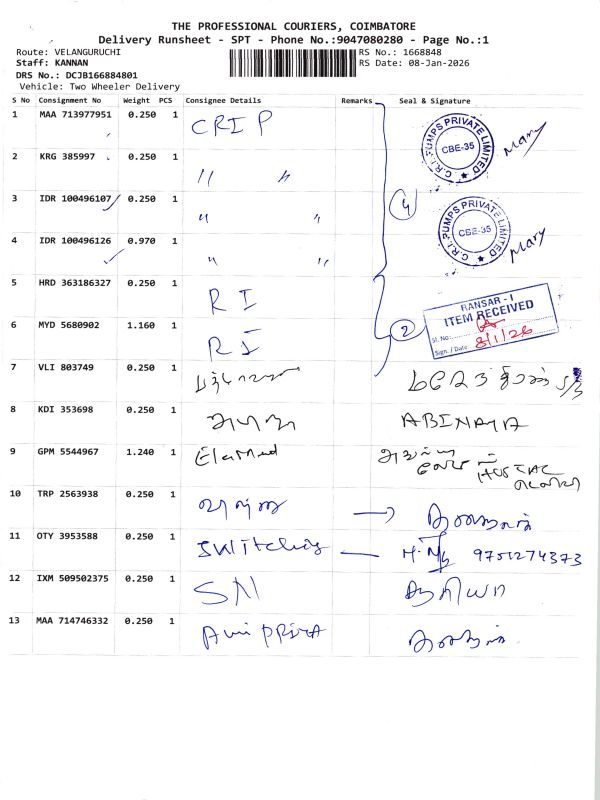 THE PROFESSIONAL COURIERS, COIMBATORE
Delivery Runsheet - SPT - Phone No.:9047080280 - Page No.:1
Route: VELANGURUCHI
RS No.: 1668848
Staff: KANNAN
RS Date: 08-Jan-2026
DRS No.: DCJB166884801
Vehicle: Two Wheeler Delivery
S No Consignment No Weight PCS Consignee Details Remarks Seal & Signature
1 MAA 713977951 0.250 1 CRI P
C.R.I. PUMPS PRIVATE LIMITED CBE-35 Mary
2 KRG 385997 0.250 1 " "
3 IDR 100496107 0.250 1 " "
4
C.R.I. PUMPS PRIVATE LIMITED CBE-35 Mary
4 IDR 100496126 0.970 1 " "
5 HRD 363186327 0.250 1 R I
2
RANSAR - I
ITEM RECEIVED
Sl. No:
Sign. / Date: 8/1/26
6 MYD 5680902 1.160 1 R I
7 VLI 803749 0.250 1
8 KDI 353698 0.250 1 ABINAYA
9 GPM 5544967 1.240 1
10 TRP 2563938 0.250 1
11 OTY 3953588 0.250 1 Switching 9751274373
12 IXM 509502375 0.250 1 SN
13 MAA 714746332 0.250 1